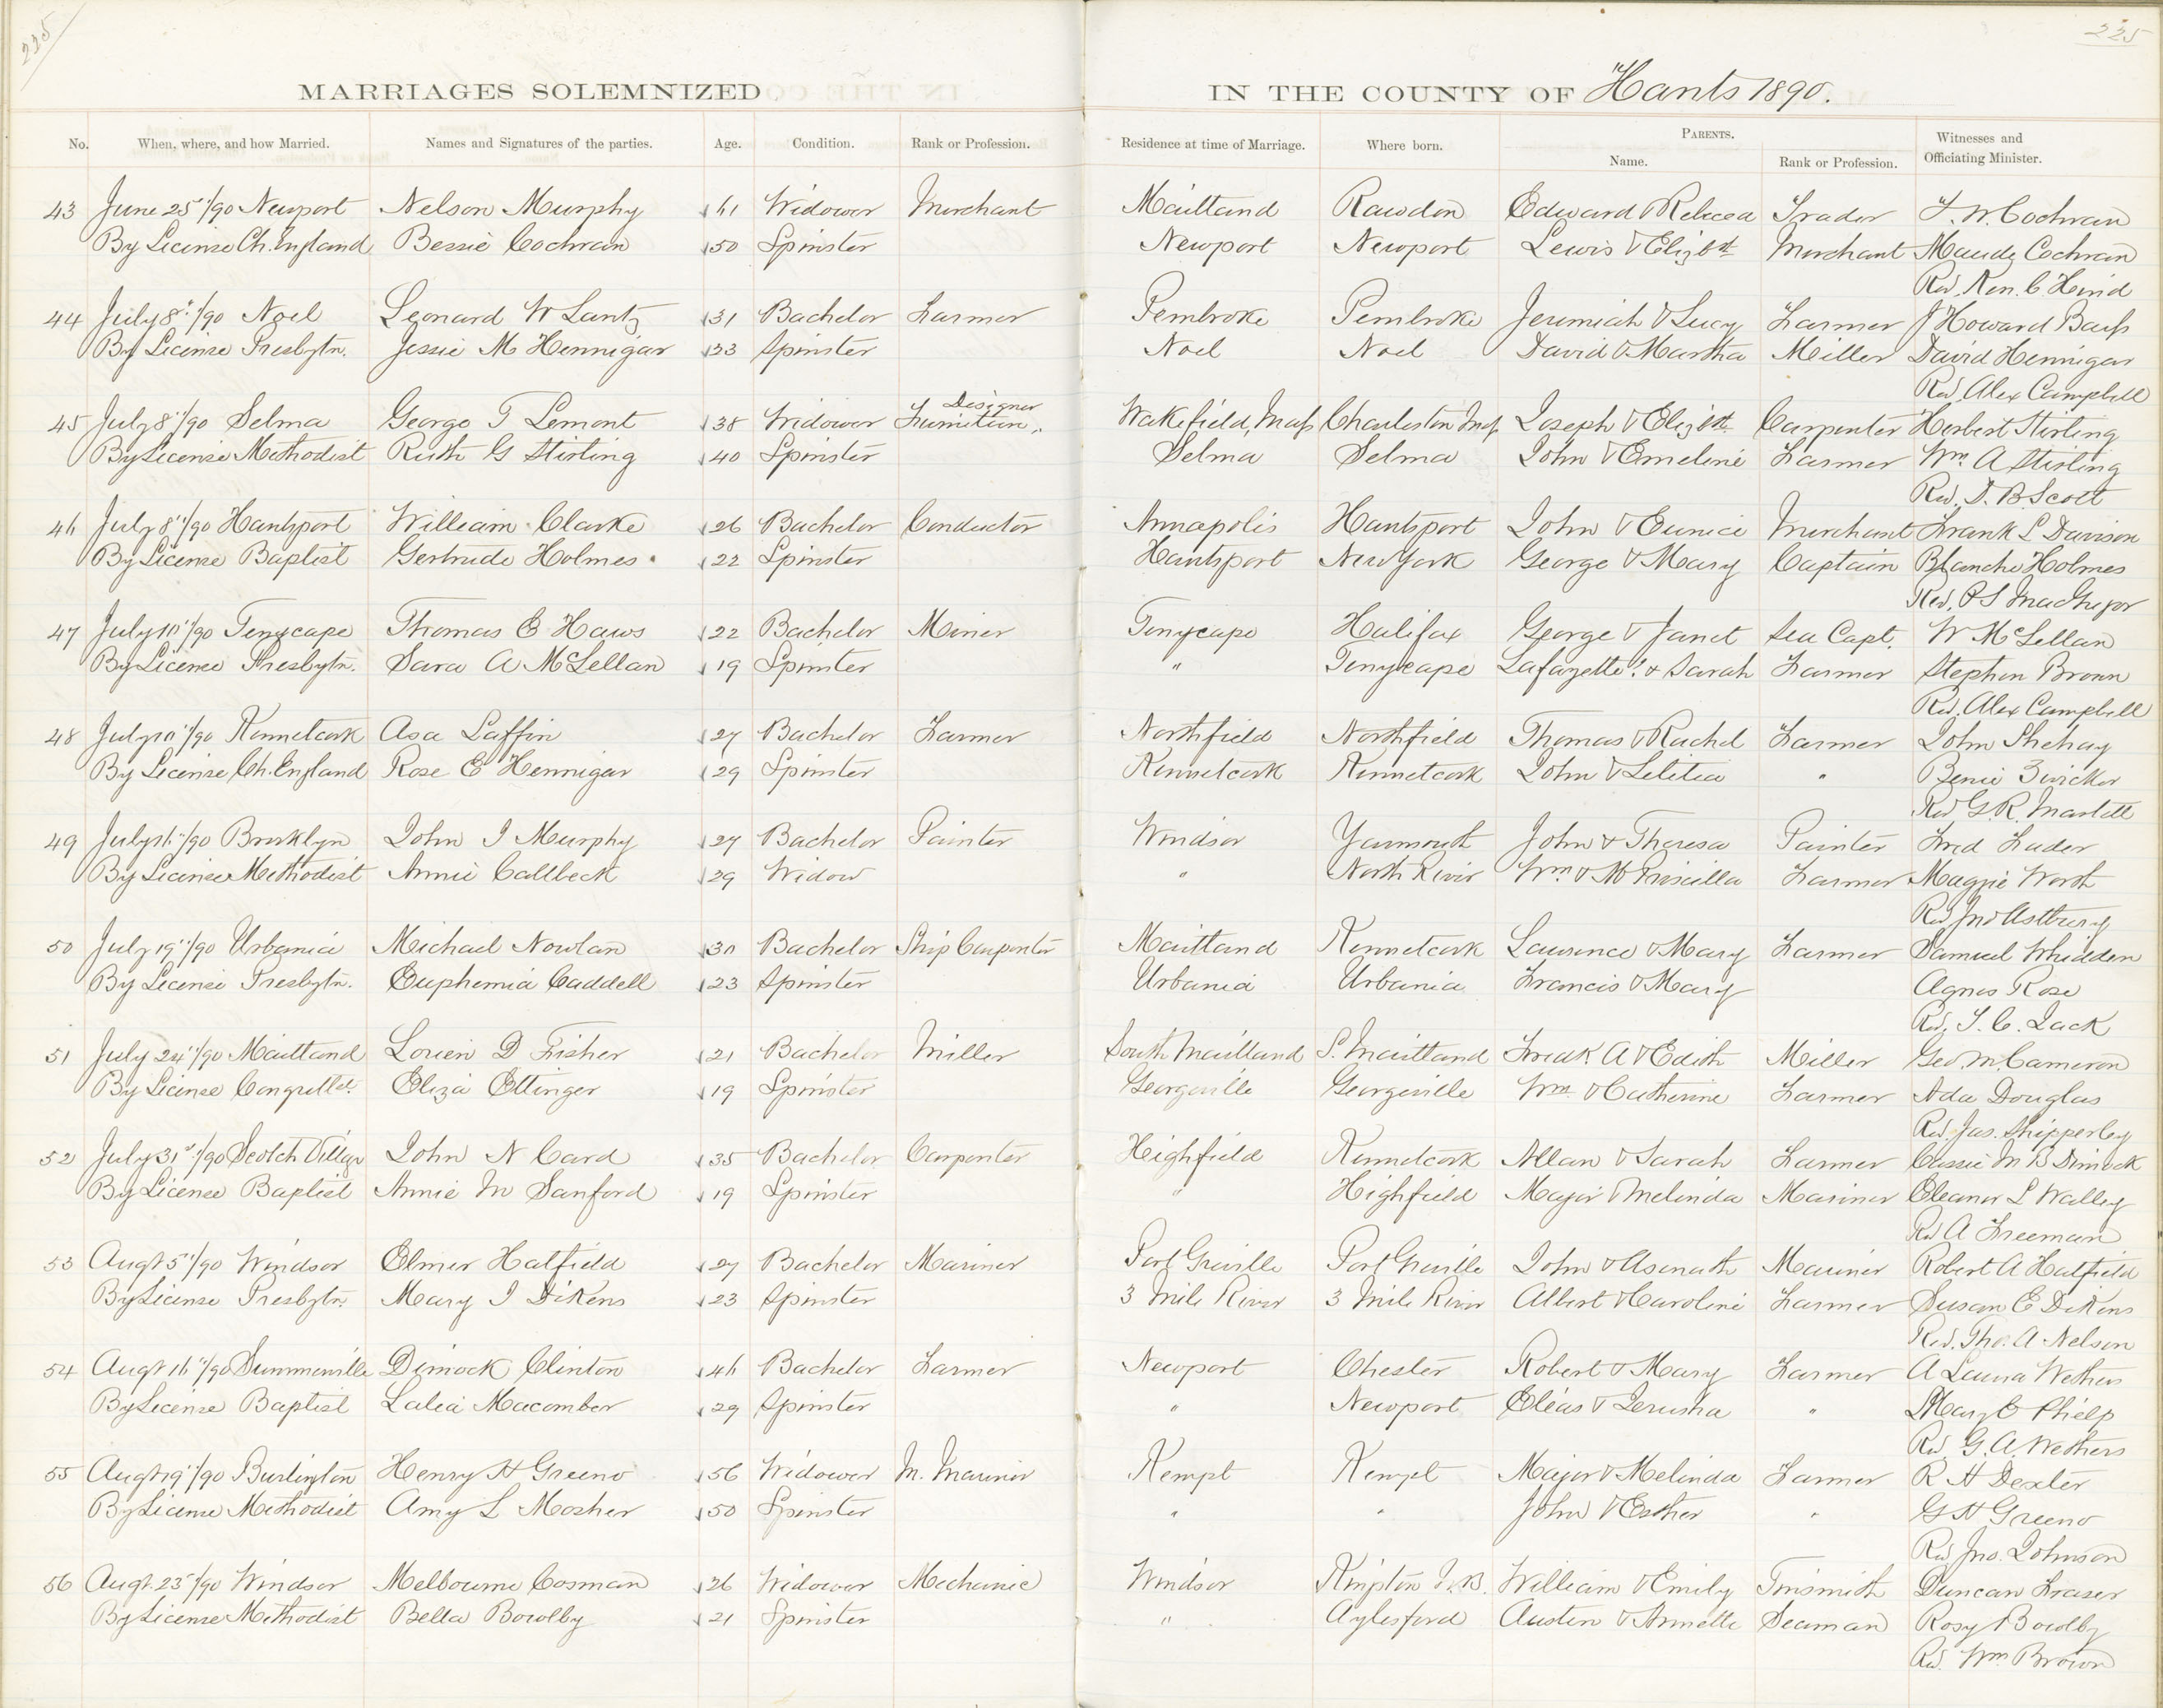 225
225
MARRIAGES SOLEMNIZED IN THE COUNTY OF Hants 1890.
No. When, where, and how Married. Names and Signatures of the parties. Age. Condition. Rank or Profession. Residence at time of Marriage. Where born. PARENTS. Name. Rank or Profession. Witnesses and Officiating Minister.
43 June 25"/90 Newport Nelson Murphy 61 Widower Merchant Maitland Rawdon Edward & Rebecca Trader F. W. Cochran
By License Ch. England Bessie Cochran 50 Spinster Newport Newport Lewis & Elizbth Merchant Maude Cochran
Rev. Ken. C Hind
44 July 8"/90 Noel Leonard W Lantz 31 Bachelor Farmer Pembroke Pembroke Jeremiah & Lucy Farmer J Howard Barss
By License Presbytn. Jessie M Hennigar 33 Spinster Noel Noel David & Martha Miller David Hennigar
Rev. Alex Campbell
45 July 8"/90 Selma George T Lemont 38 Widower Furniture Designer Wakefield, Mass Charleston Mass Joseph & Elizbth. Carpenter Herbert Stirling
By License Methodist Ruth G Stirling 40 Spinster Selma Selma John & Emeline Farmer Wm. A Stirling
Rev. D. B. Scott
46 July 8"/90 Hantsport William Clarke 26 Bachelor Conductor Annapolis Hantsport John & Eunice Merchant Frank L Davison
By License Baptist Gertrude Holmes 22 Spinster Hantsport New York George & Mary Captain Blanche Holmes
Rev. P S MacGregor
47 July 10"/90 Tenycape Thomas E Haws 22 Bachelor Miner Tenycape Halifax George & Janet Sea Capt. W McLellan
By License Presbytn. Sara A McLellan 19 Spinster " Tenycape Lafayette & Sarah Farmer Stephen Brown
Rev. Alex Campbell
48 July 10"/90 Kennetcook Asa Laffin 27 Bachelor Farmer Northfield Northfield Thomas & Rachel Farmer John Shehay
By License Ch. England Rose E Hennigar 29 Spinster Kennetcook Kennetcook John & Letitia " Benie Zwicker
Rev G. R. Martell
49 July 16"/90 Brooklyn John J Murphy 27 Bachelor Painter Windsor Yarmouth John & Theresa Painter Fred Lader
By License Methodist Annie Callbeck 29 Widow " North River Wm & M Priscilla Farmer Maggie Worth
Rev Jno Astbury
50 July 19"/90 Urbania Michael Nowlan 30 Bachelor Ship Carpenter Maitland Kennetcook Lawrence & Mary Farmer Samuel Whidden
By License Presbytn. Euphemia Caddell 23 Spinster Urbania Urbania Francis & Mary Agnes Rose
Rev. T. C. Jack
51 July 24"/90 Maitland Lorien D Fisher 21 Bachelor Miller South Maitland S. Maitland Fredk. A & Edith Miller Geo. M. Cameron
By License Congretl. Eliza Ettinger 19 Spinster Georgeville Georgeville Wm & Catherine Farmer Ada Douglas
Rev. Jas. Shipperley
52 July 31"/90 Scotch Village John N Card 35 Bachelor Carpenter Highfield Kennetcook Allan & Sarah Farmer Cassie M B Dimock
By License Baptist Annie M Sanford 19 Spinster " Highfield Major & Melinda Mariner Eleanor L Walley
Rev A Freeman
53 Augt 5"/90 Windsor Elmer Hatfield 27 Bachelor Mariner Port Greville Port Greville John & Asenath Mariner Robert A Hatfield
By License Presbytn. Mary J Dikens 23 Spinster 3 Mile River 3 Mile River Albert & Caroline Farmer Susan E Dikens
Rev. Tho. A Nelson
54 Augt 16"/90 Summerville Dimock Clinton 46 Bachelor Farmer Newport Chester Robert & Mary Farmer A Laura Wethers
By License Baptist Lalia Macomber 29 Spinster " Newport Elias & Jerusha " Mary E Phelp
Rev. G. A Wethers
55 Augt 19"/90 Burlington Henry H Greeno 56 Widower M. Mariner Kempt Kempt Major & Melinda Farmer R H Dexter
By License Methodist Amy L Mosher 50 Spinster " " John & Esther " G H Greeno
Rev. Jno. Johnson
56 Augt. 23"/90 Windsor Melbourne Cosman 26 Widower Mechanic Windsor Kingston N.B. William & Emily Tinsmith Duncan Fraser
By License Methodist Bella Bowlby 21 Spinster " Aylesford Austen & Annetta Seaman Rosy Bowlby
Rev. Wm Brown